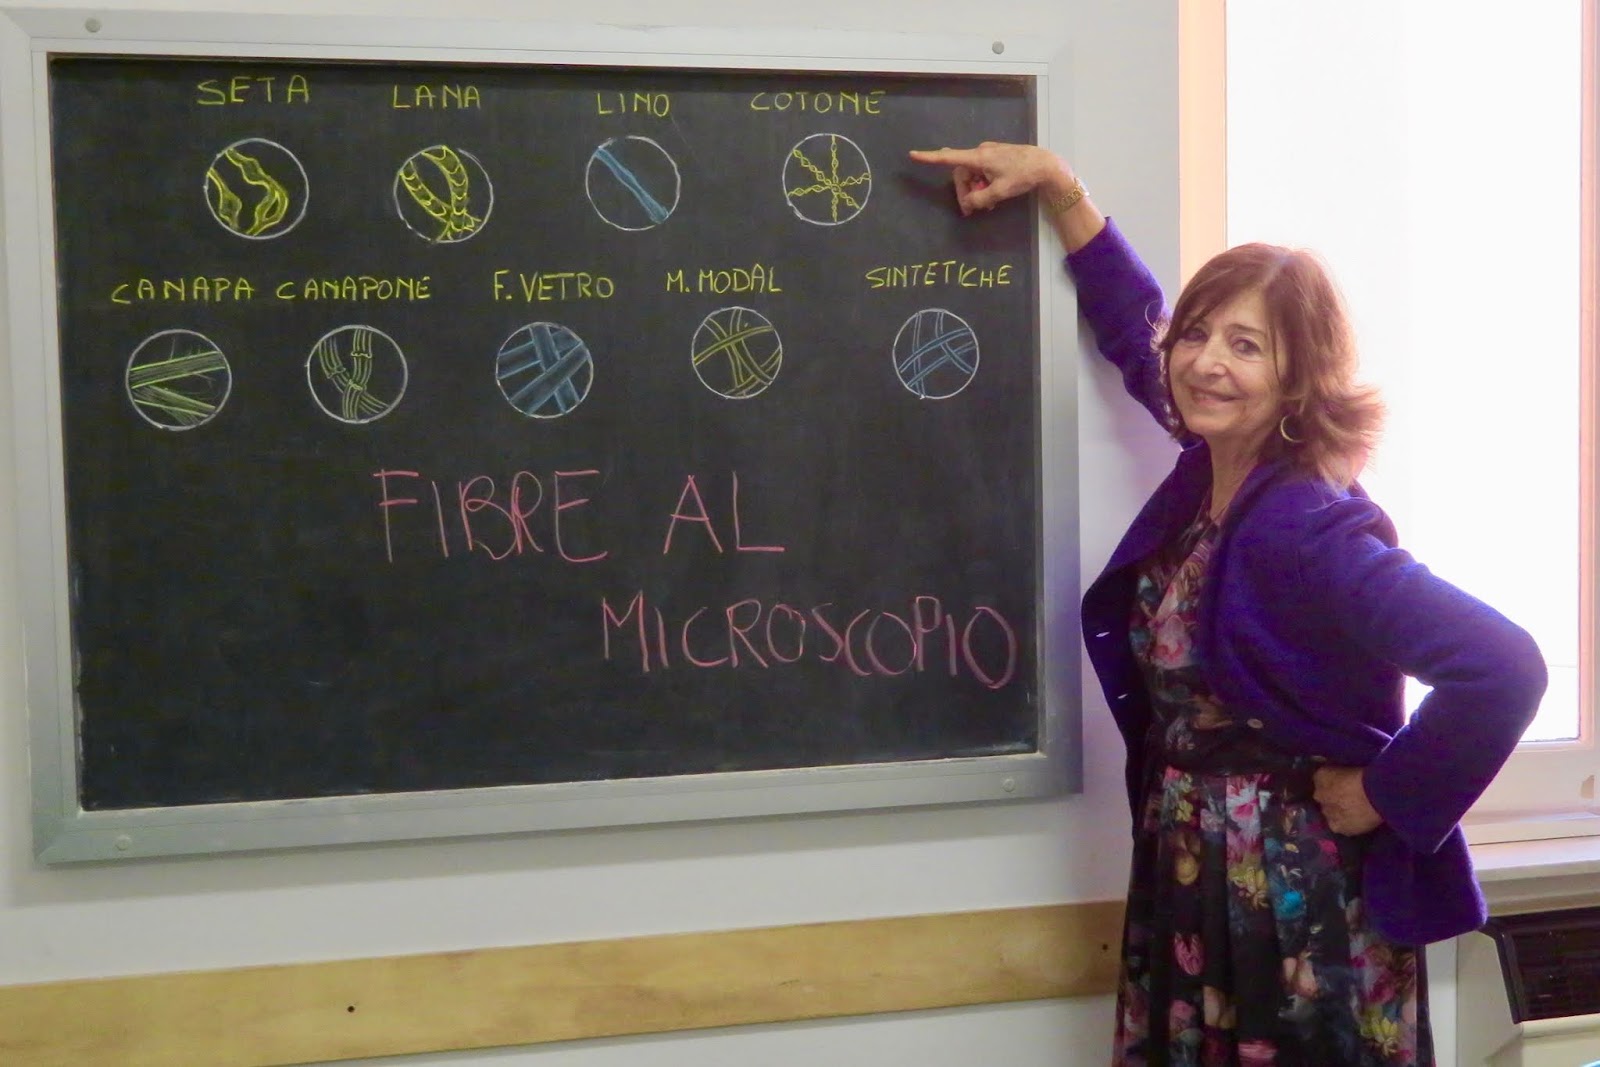 SETA LANA LINO COTONE
CANAPA CANAPONE F.VETRO M.MODAL SINTETICHE
FIBRE AL
MICROSCOPIO